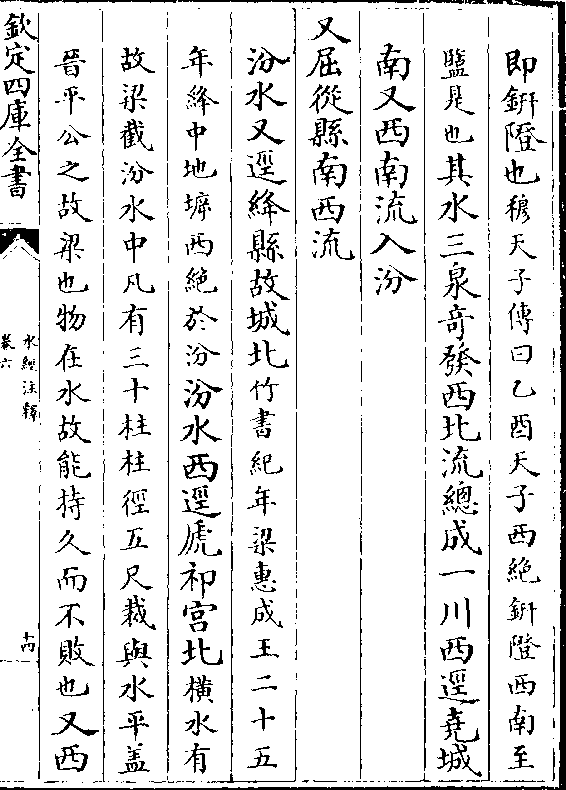 即鈃隥也穆天子傳曰乙酉天子西絶鈃隥西南至
盬是也其水三泉奇發西北流總成一川西逕堯城
南又西南流入汾
又屈從縣南西流
汾水又逕絳縣故城北竹書紀年梁惠成王二十五
年絳中地㙷西絶於汾汾水西逕虒祁宫北横水有
故梁截汾水中凡有三十柱柱徑五尺裁與水平盖
晉平公之故梁也物在水故能持久而不敗也又西
欽定四庫全書
水經注釋
卷六
十四